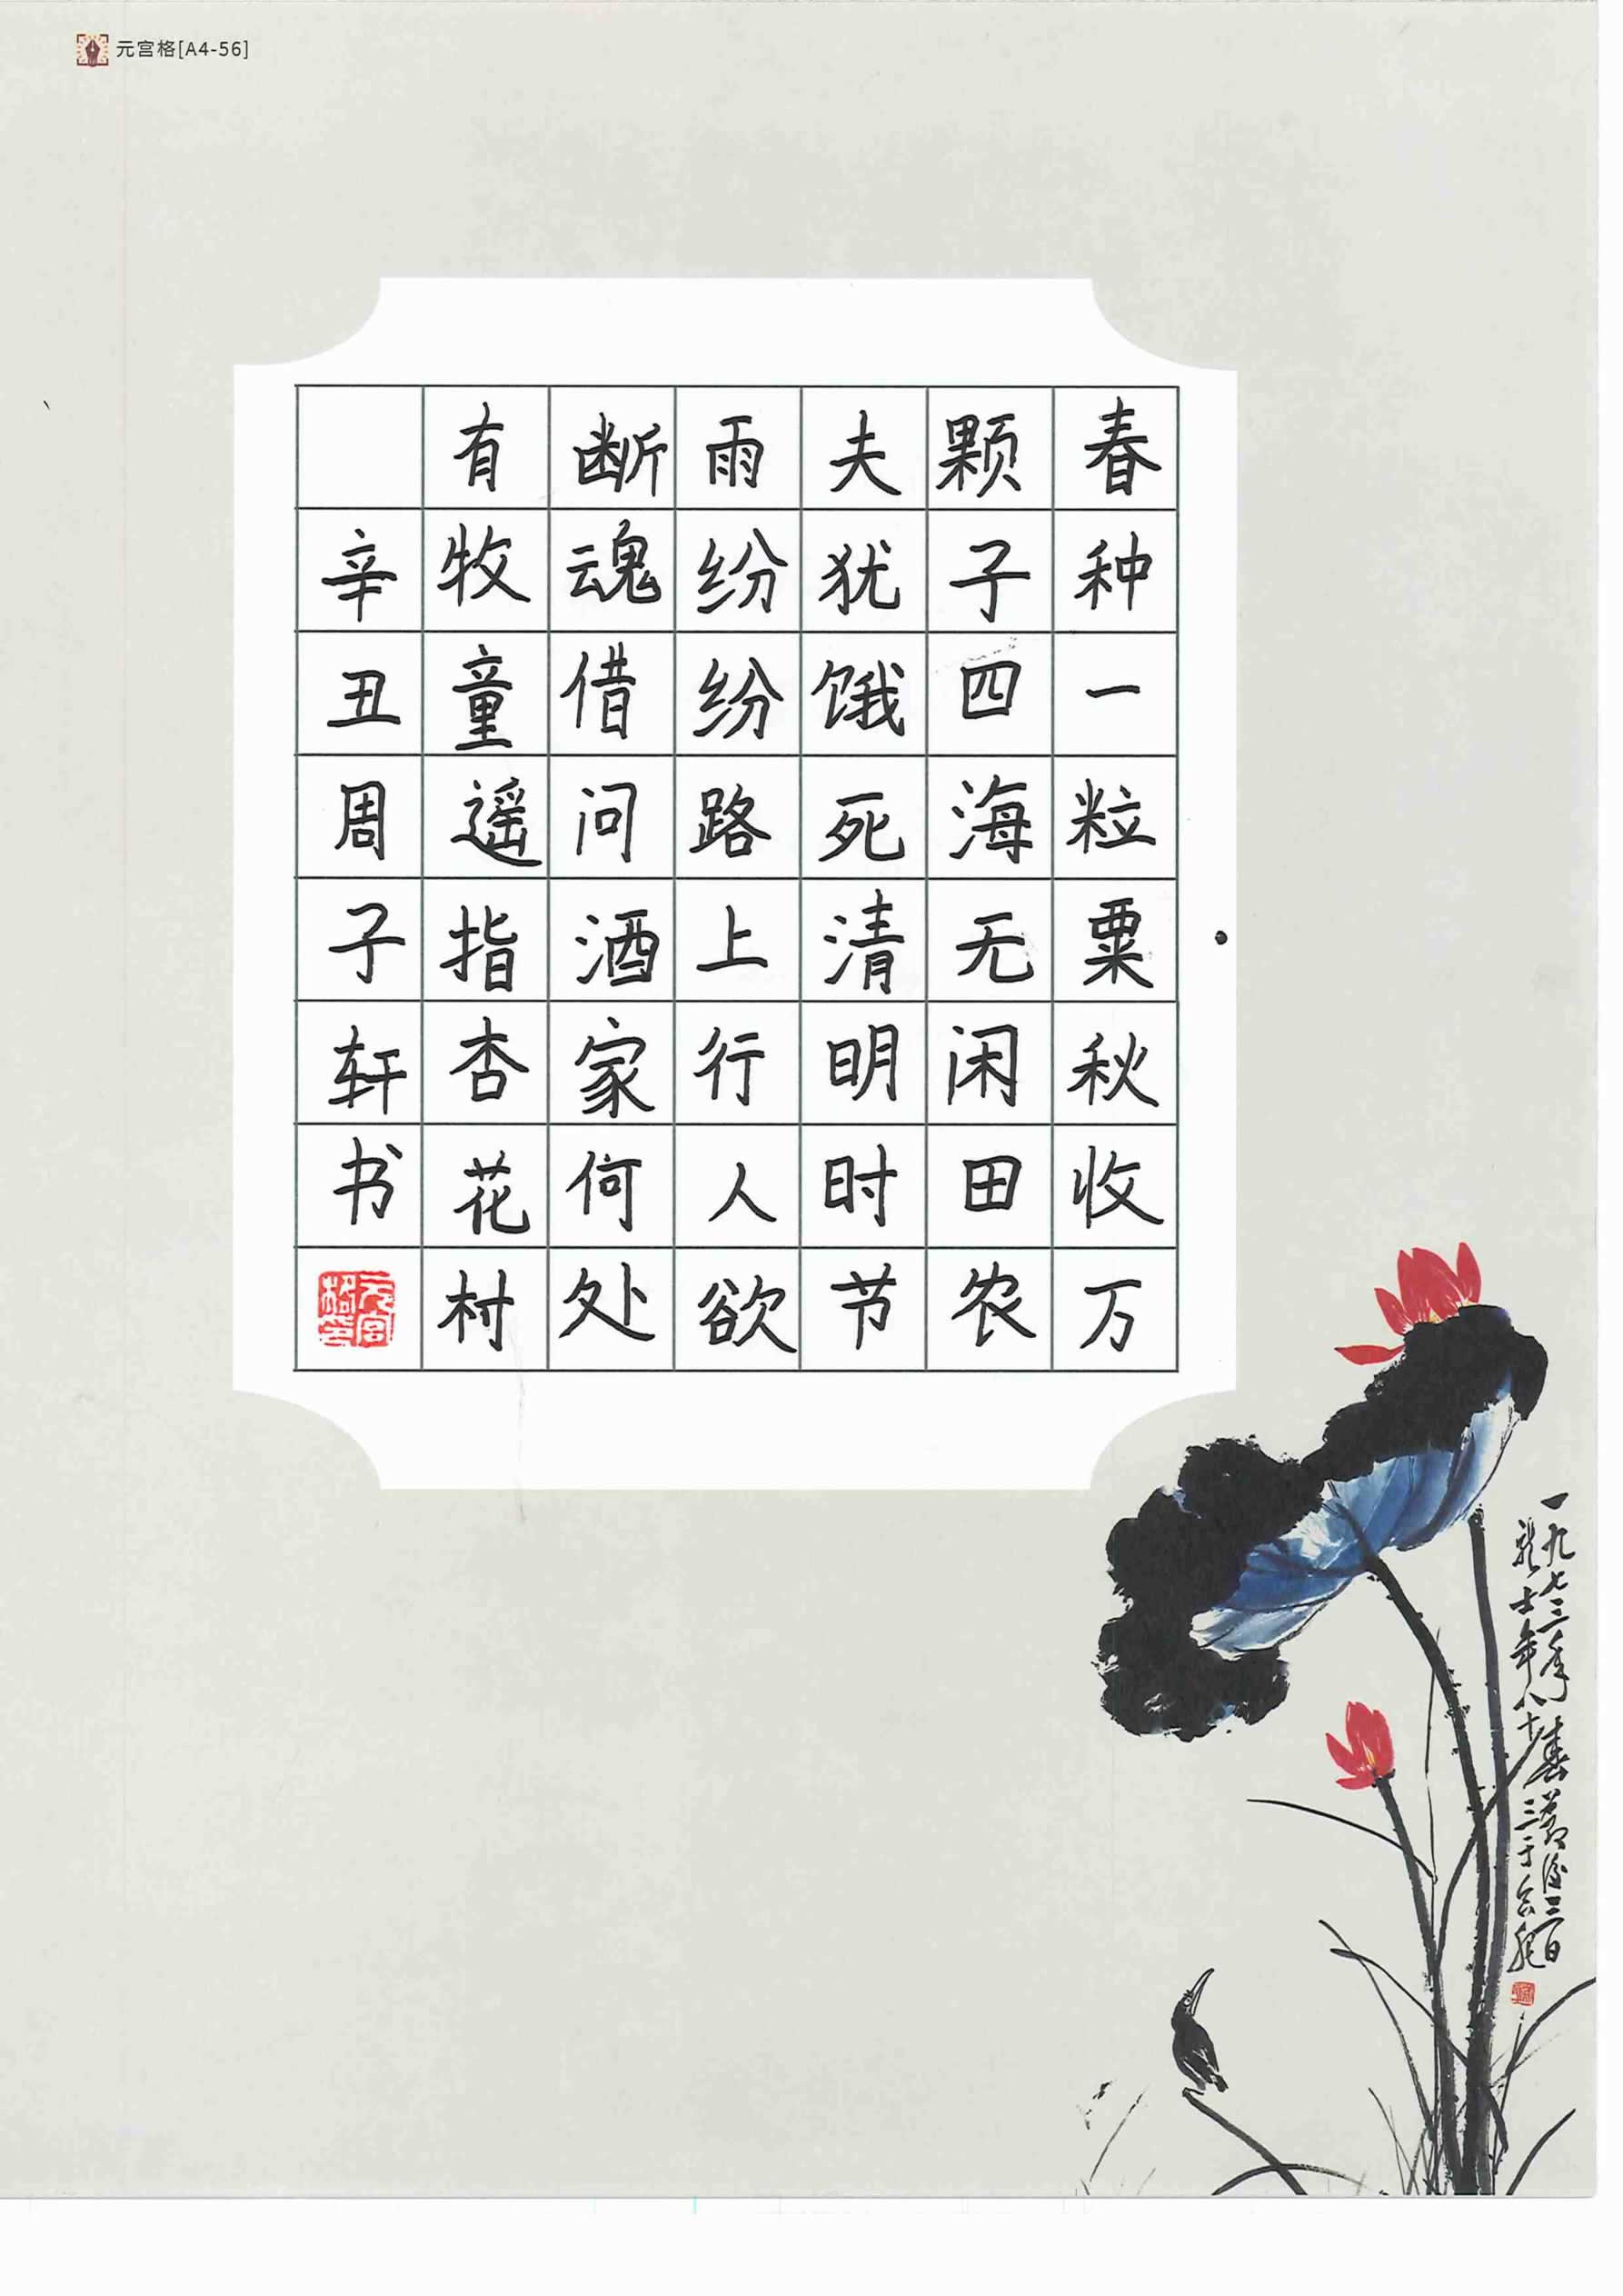 元宫格[A4-56]
春种一粒粟秋收万
颗子四海无闲田农
夫犹饿死清明时节
雨纷纷路上行人欲
断魂借问酒家何处
有牧童遥指杏花村
辛丑周子轩书
元宫格印